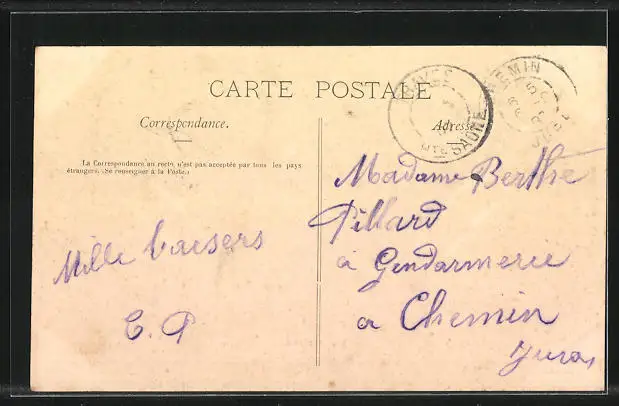 CARTE POSTALE
Correspondance.
Adresse
La Correspondance au recto, n'est pas acceptée par tous les pays
étrangers. (Se renseigner à la Poste.)
TRAVES
HTE SAÔNE
CHEMIN
Mille baisers
E. P
Madame Berthe
Pillard
a Gendarmerie
a Chemin
Jura